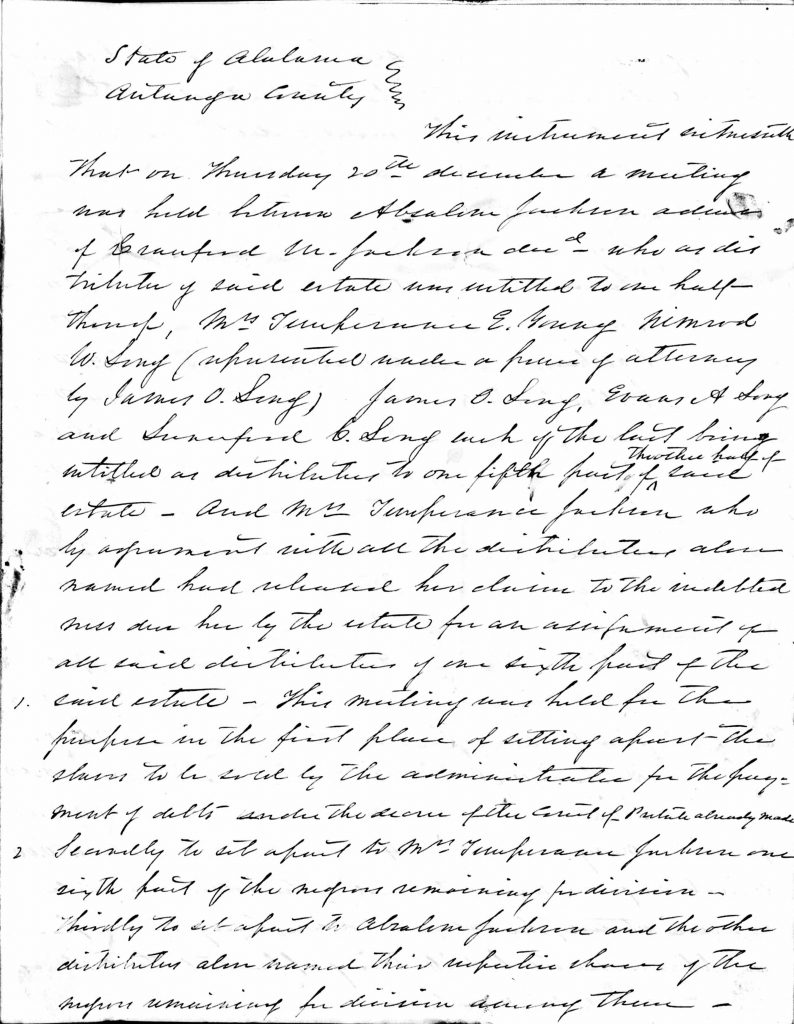 State of Alabama
Autauga County
This instrument witnesseth
that on Thursday 20th december a meeting
was held between Absalom Jackson admr
of Crawford M. Jackson decd - who as dis
tributee of said estate was entitled to one half
thereof, Mrs Temperance E. Young Nimrod
W. Long (represented under a power of attorney
by James O. Long) James O. Long, Evans A Long
and Lunceford C. Long each of the last being
entitled as distributees to one fifth part of the other half of said
estate - And Mrs Temperance Jackson who
by agreement with all the distributees above
named had released her claim to the indebted
ness due her by the estate for an assignment of
all said distributees of one sixth part of the
1. said estate - This meeting was held for the
purpose in the first place of setting apart the
slaves to be sold by the administrator for the pay-
ment of debts under the decree of the Court of Probate already made
2 Secondly to set apart to Mrs Temperance Jackson one
sixth part of the negroes remaining for division -
Thirdly to set apart to Absalom Jackson and the other
distributees above named their respective shares of the
negroes remaining for division among them -